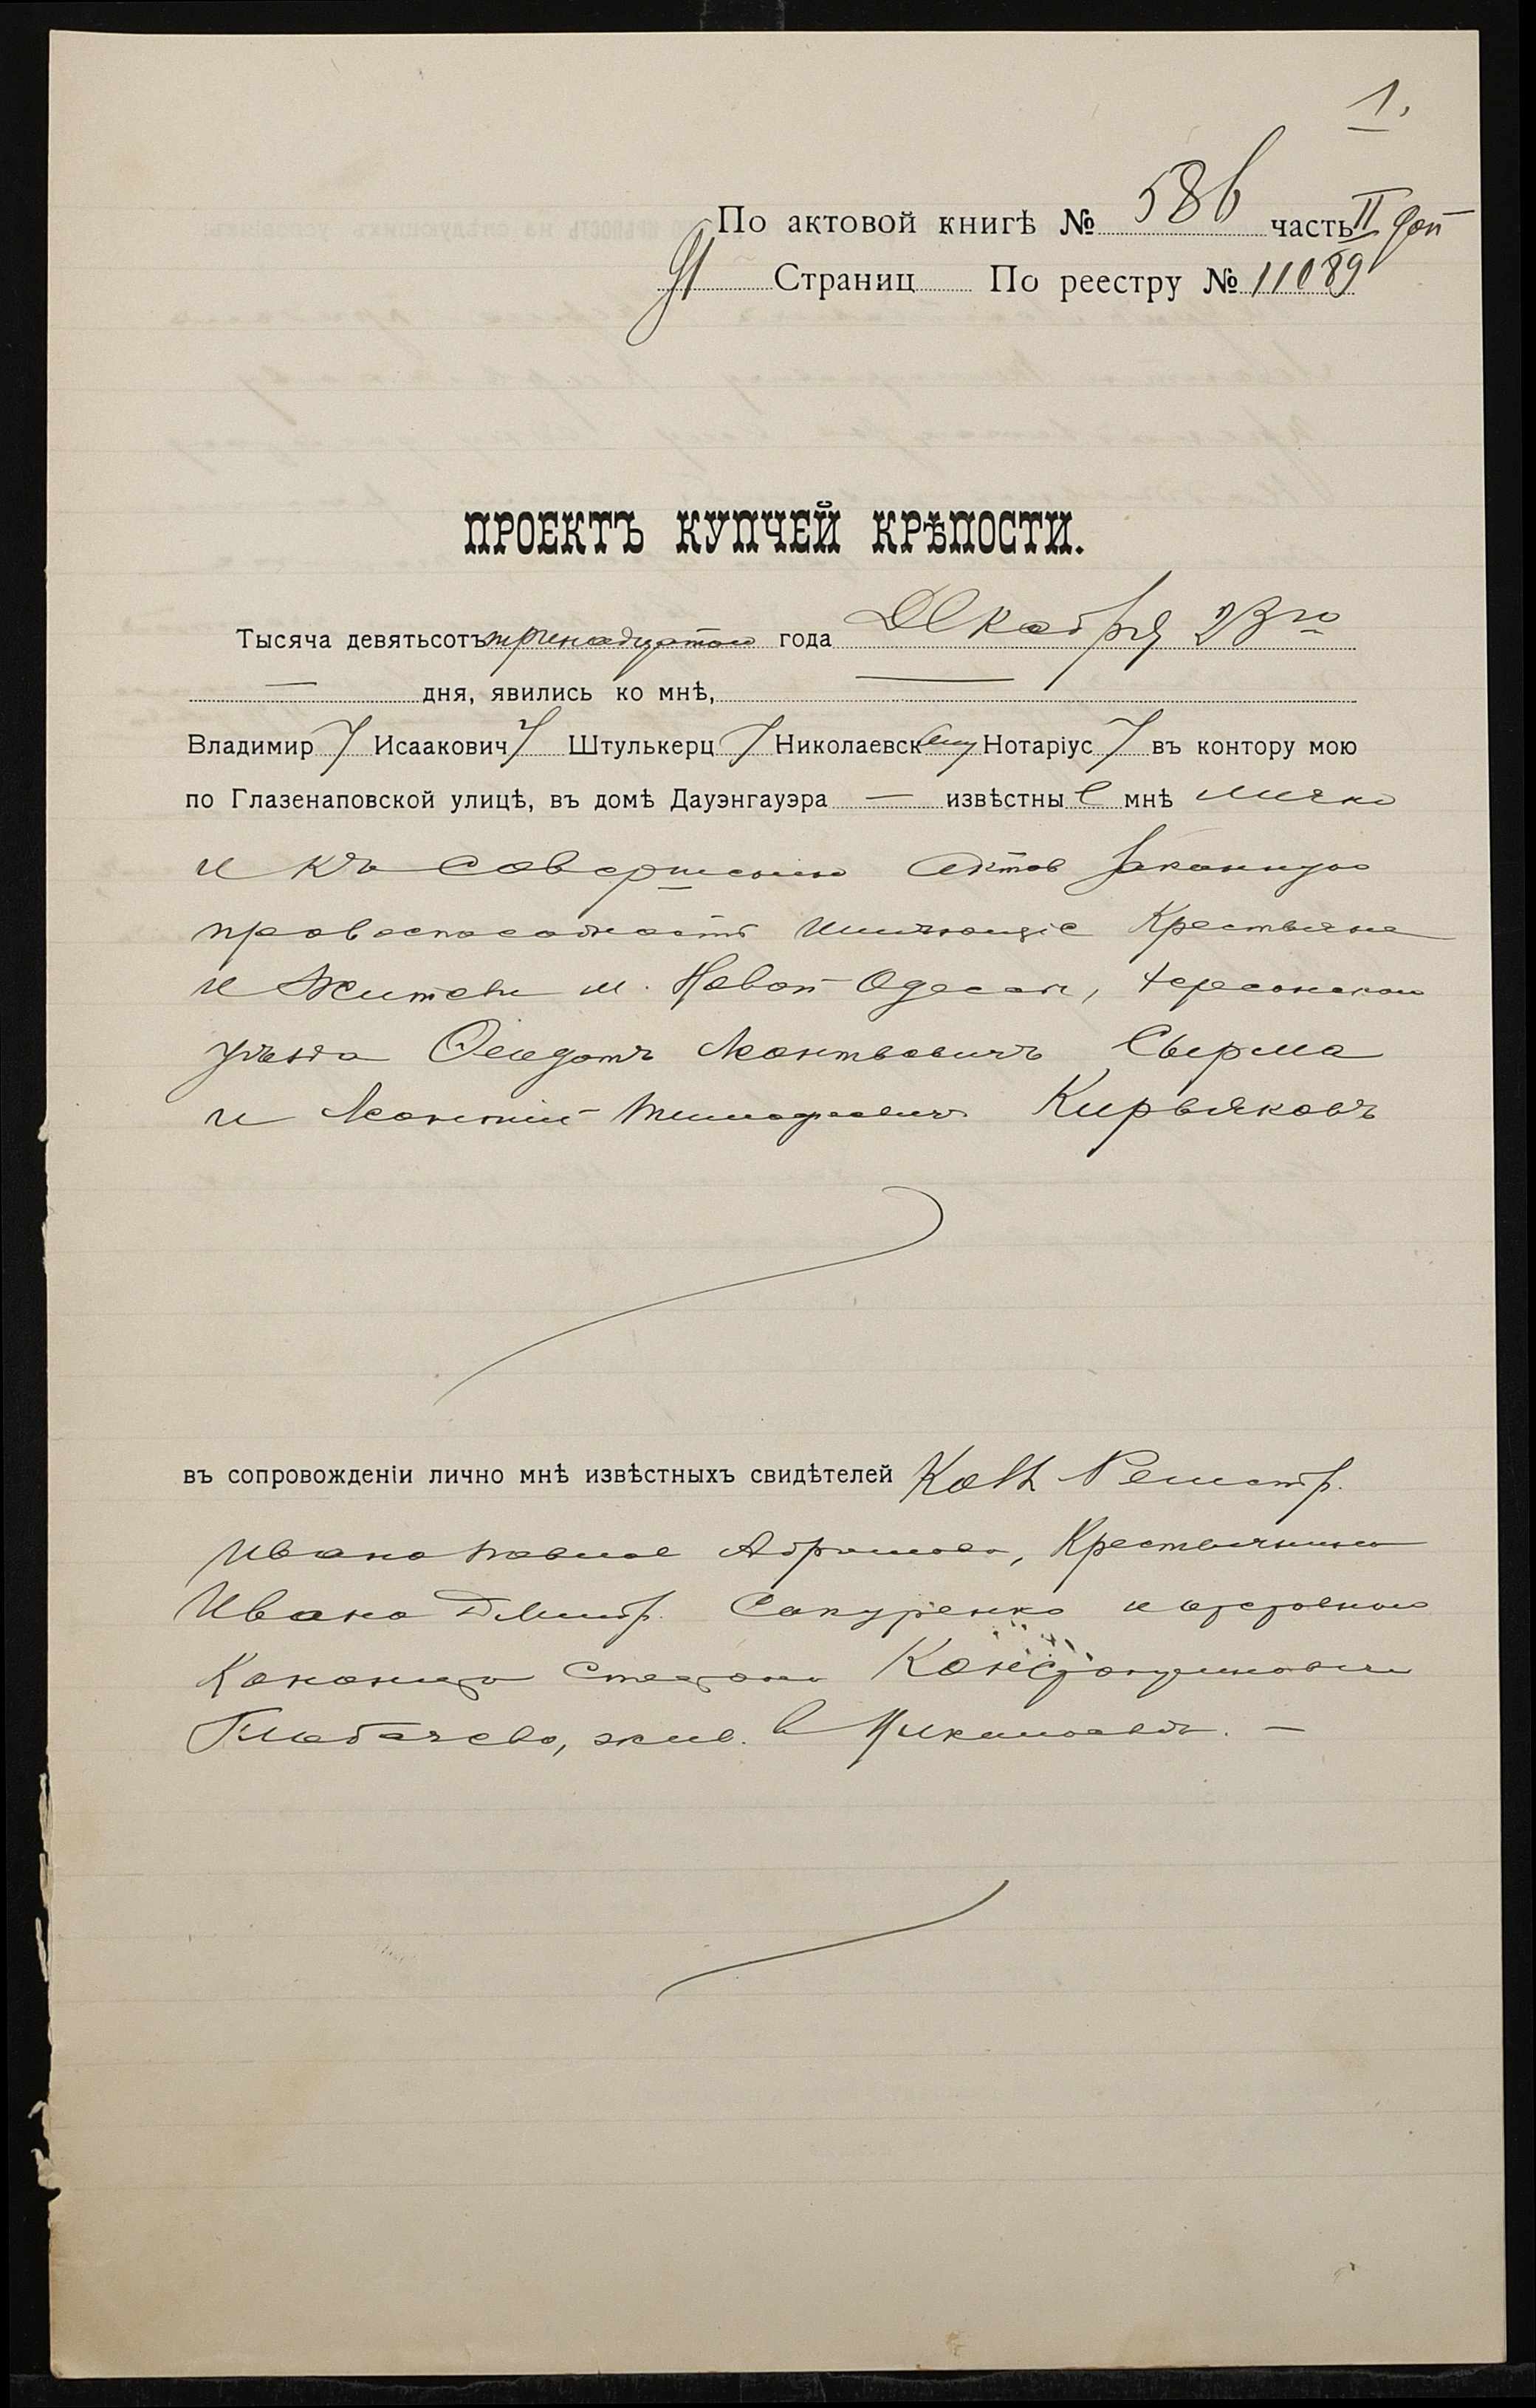 1.
По актовой книгѣ № 586 часть II доп
91 Страниц По реестру № 11089
ПРОЕКТЪ КУПЧЕЙ КРѢПОСТИ.
Тысяча девятьсотъ тринадцатаго года Декабря 23го
— дня, явились ко мнѣ, —
Владимир у Исаакович у Штулькерц у Николаевск ому Нотаріус у въ контору мою
по Глазенаповской улицѣ, въ домѣ Дауэнгауэра — извѣстны е мнѣ лично
и къ совершенію актов законную
правоспособность имѣющіе Крестьяне
и жители м. Новой Одессы, Херсонскаго
уѣзда Ѳеодотъ Леонтьевичъ Сырма
и Леонтій Тимофеевичъ Кирьяковъ
въ сопровожденіи лично мнѣ извѣстныхъ свидѣтелей Колл Регистр.
Ивана Абрамова, Крестьянина
Ивана Дмитр. Сапуренко и
Степана Константиновича
жив. в Николаевѣ. —